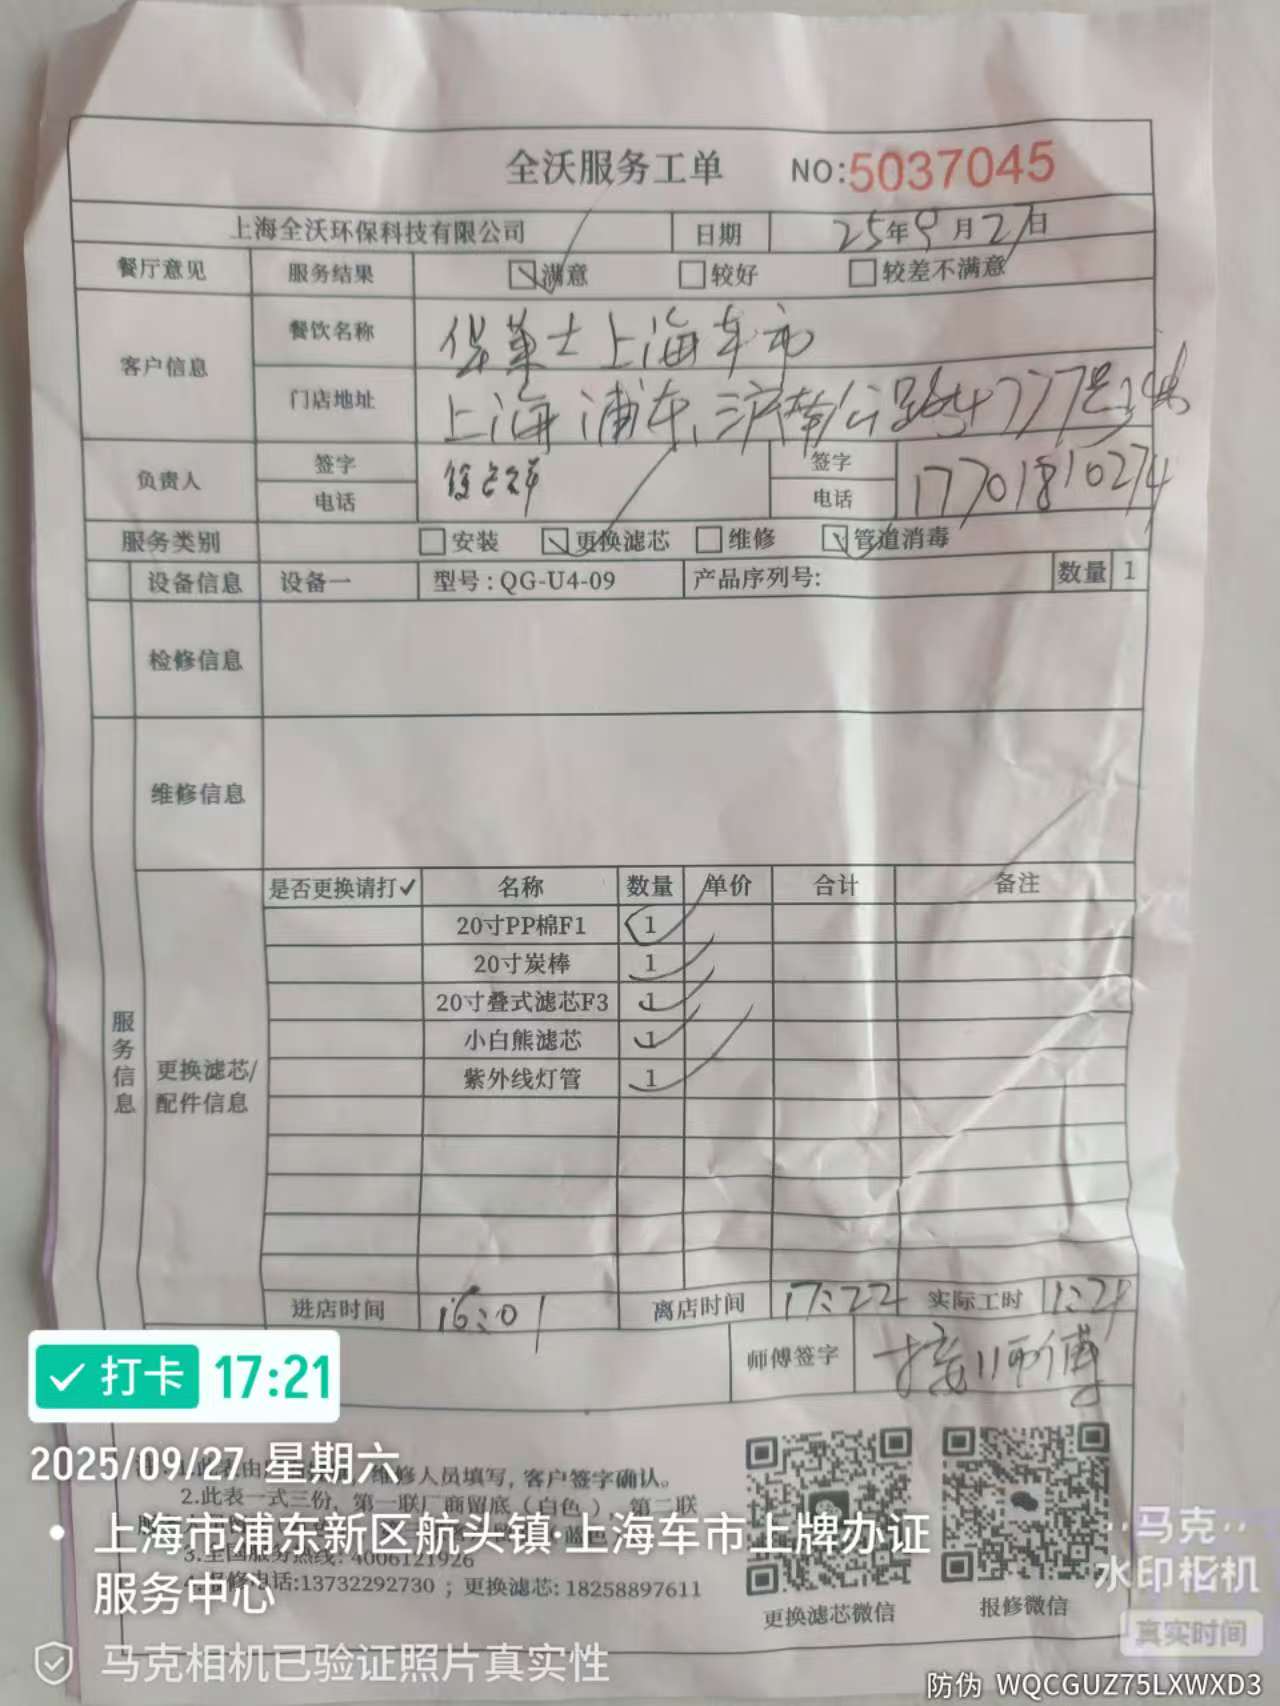 全沃服务工单 NO:5037045
上海全沃环保科技有限公司 日期 25年9月27日
餐厅意见 服务结果 满意 较好 较差不满意
客户信息 餐饮名称 保莱士上海车市
门店地址 上海浦东沪南公路4777号
负责人 签字 签字
电话 电话 17701810274
服务类别 安装 更换滤芯 维修 管道消毒
设备信息 设备一 型号:QG-U4-09 产品序列号: 数量 1
检修信息
维修信息
服务信息
更换滤芯/
配件信息
是否更换请打✓ 名称 数量 单价 合计 备注
20寸PP棉F1 1
20寸炭棒 1
20寸叠式滤芯F3 1
小白熊滤芯 1
紫外线灯管 1
进店时间 16:01 离店时间 17:22 实际工时 1:21
师傅签字 接师傅
打卡 17:21
2025/09/27 星期六
维修人员填写,客户签字确认。
2.此表一式三份,第一联厂商留底(白色),第二联
上海市浦东新区航头镇·上海车市上牌办证
服务中心
3.全国服务热线:4006121926
4.报修电话:13732292730 ; 更换滤芯:18258897611
更换滤芯微信 报修微信
马克
水印相机
真实时间
马克相机已验证照片真实性
防伪 WQCGUZ75LXWXD3